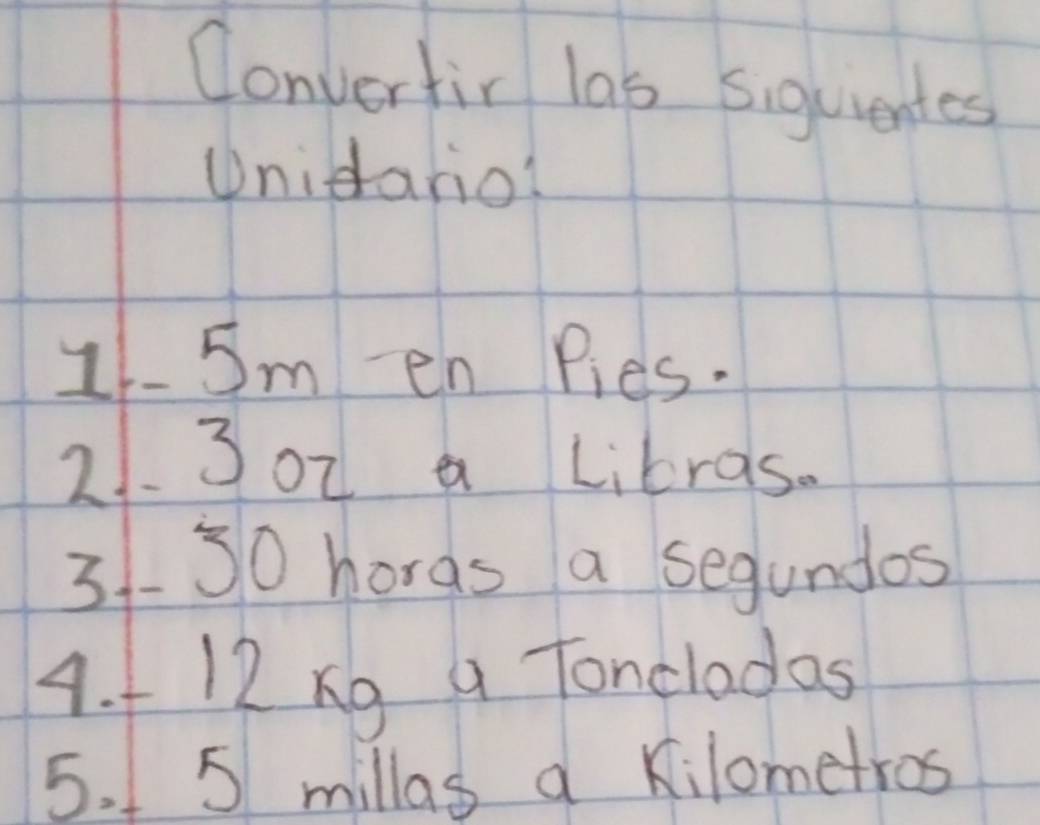 Convertir las siguientes
Unidario:
1.- 5m en Pies.
2.- 3 oz a Libras.
3.- 30 horas a segundos
4.- 12 Kg a Toneladas
5.- 5 millas a Kilometros